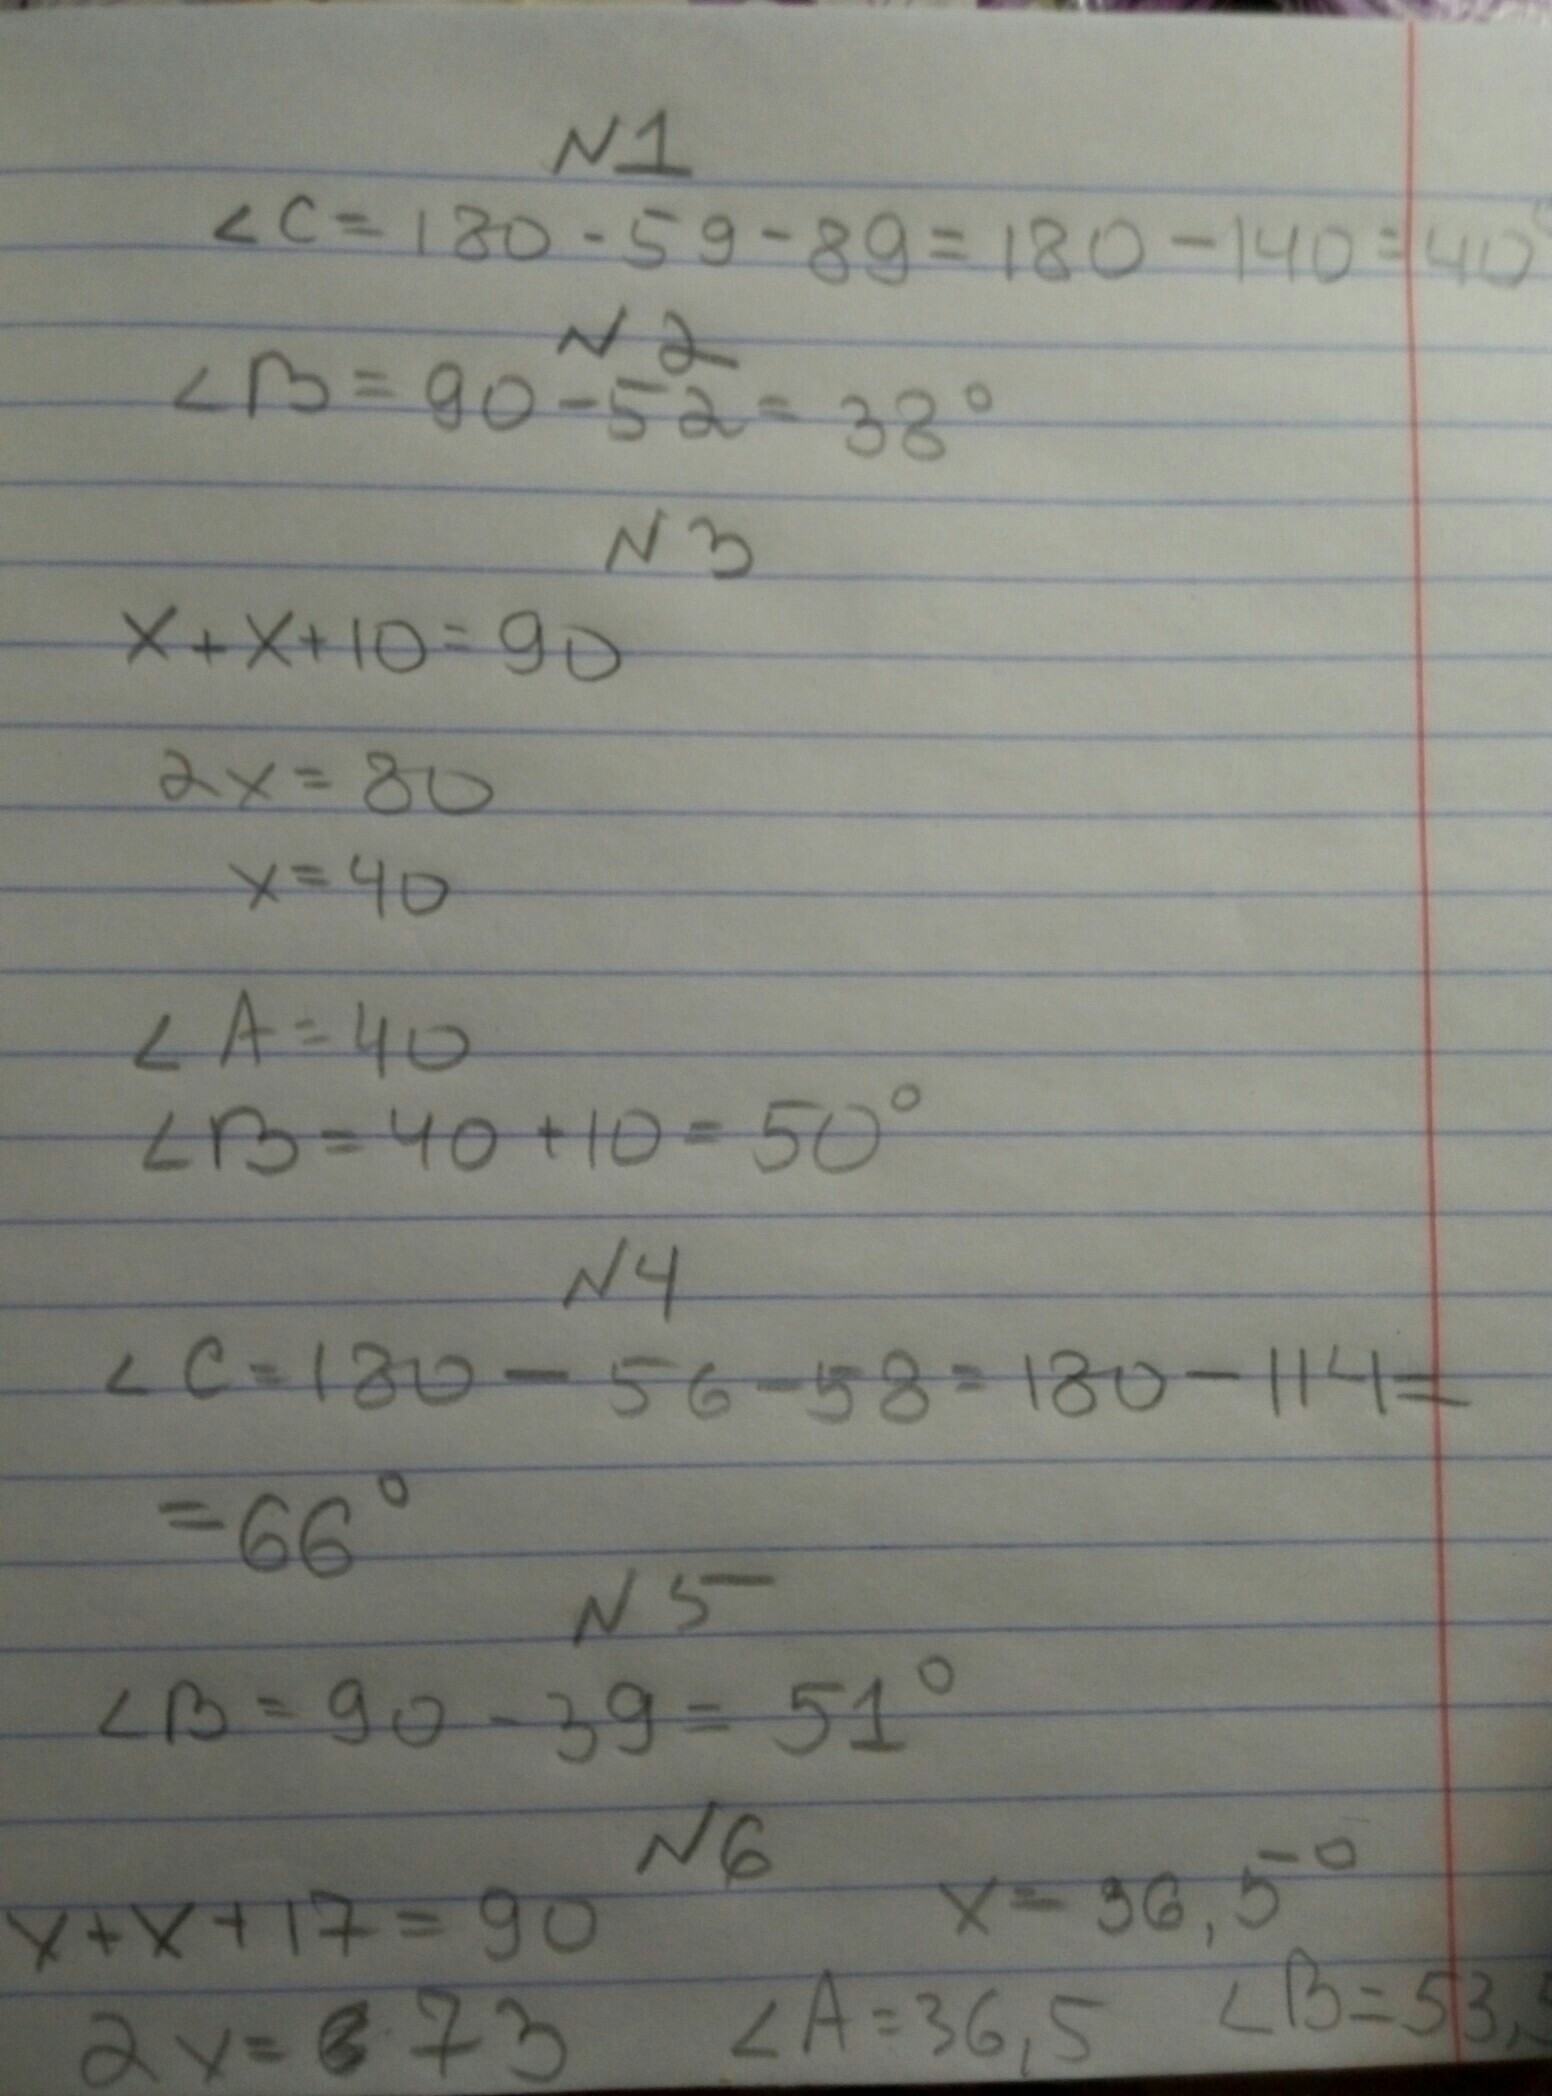 N1
∠C=180-59-89=180-140=40°
N2
∠B=90-52=38°
N3
x+x+10=90
2x=80
x=40
∠A=40
∠B=40+10=50°
N4
∠C=180-56-58=180-114=
=66°
N5
∠B=90-39=51°
N6
x+x+17=90
x=36,5°
2x=73
∠A=36,5
∠B=53,5